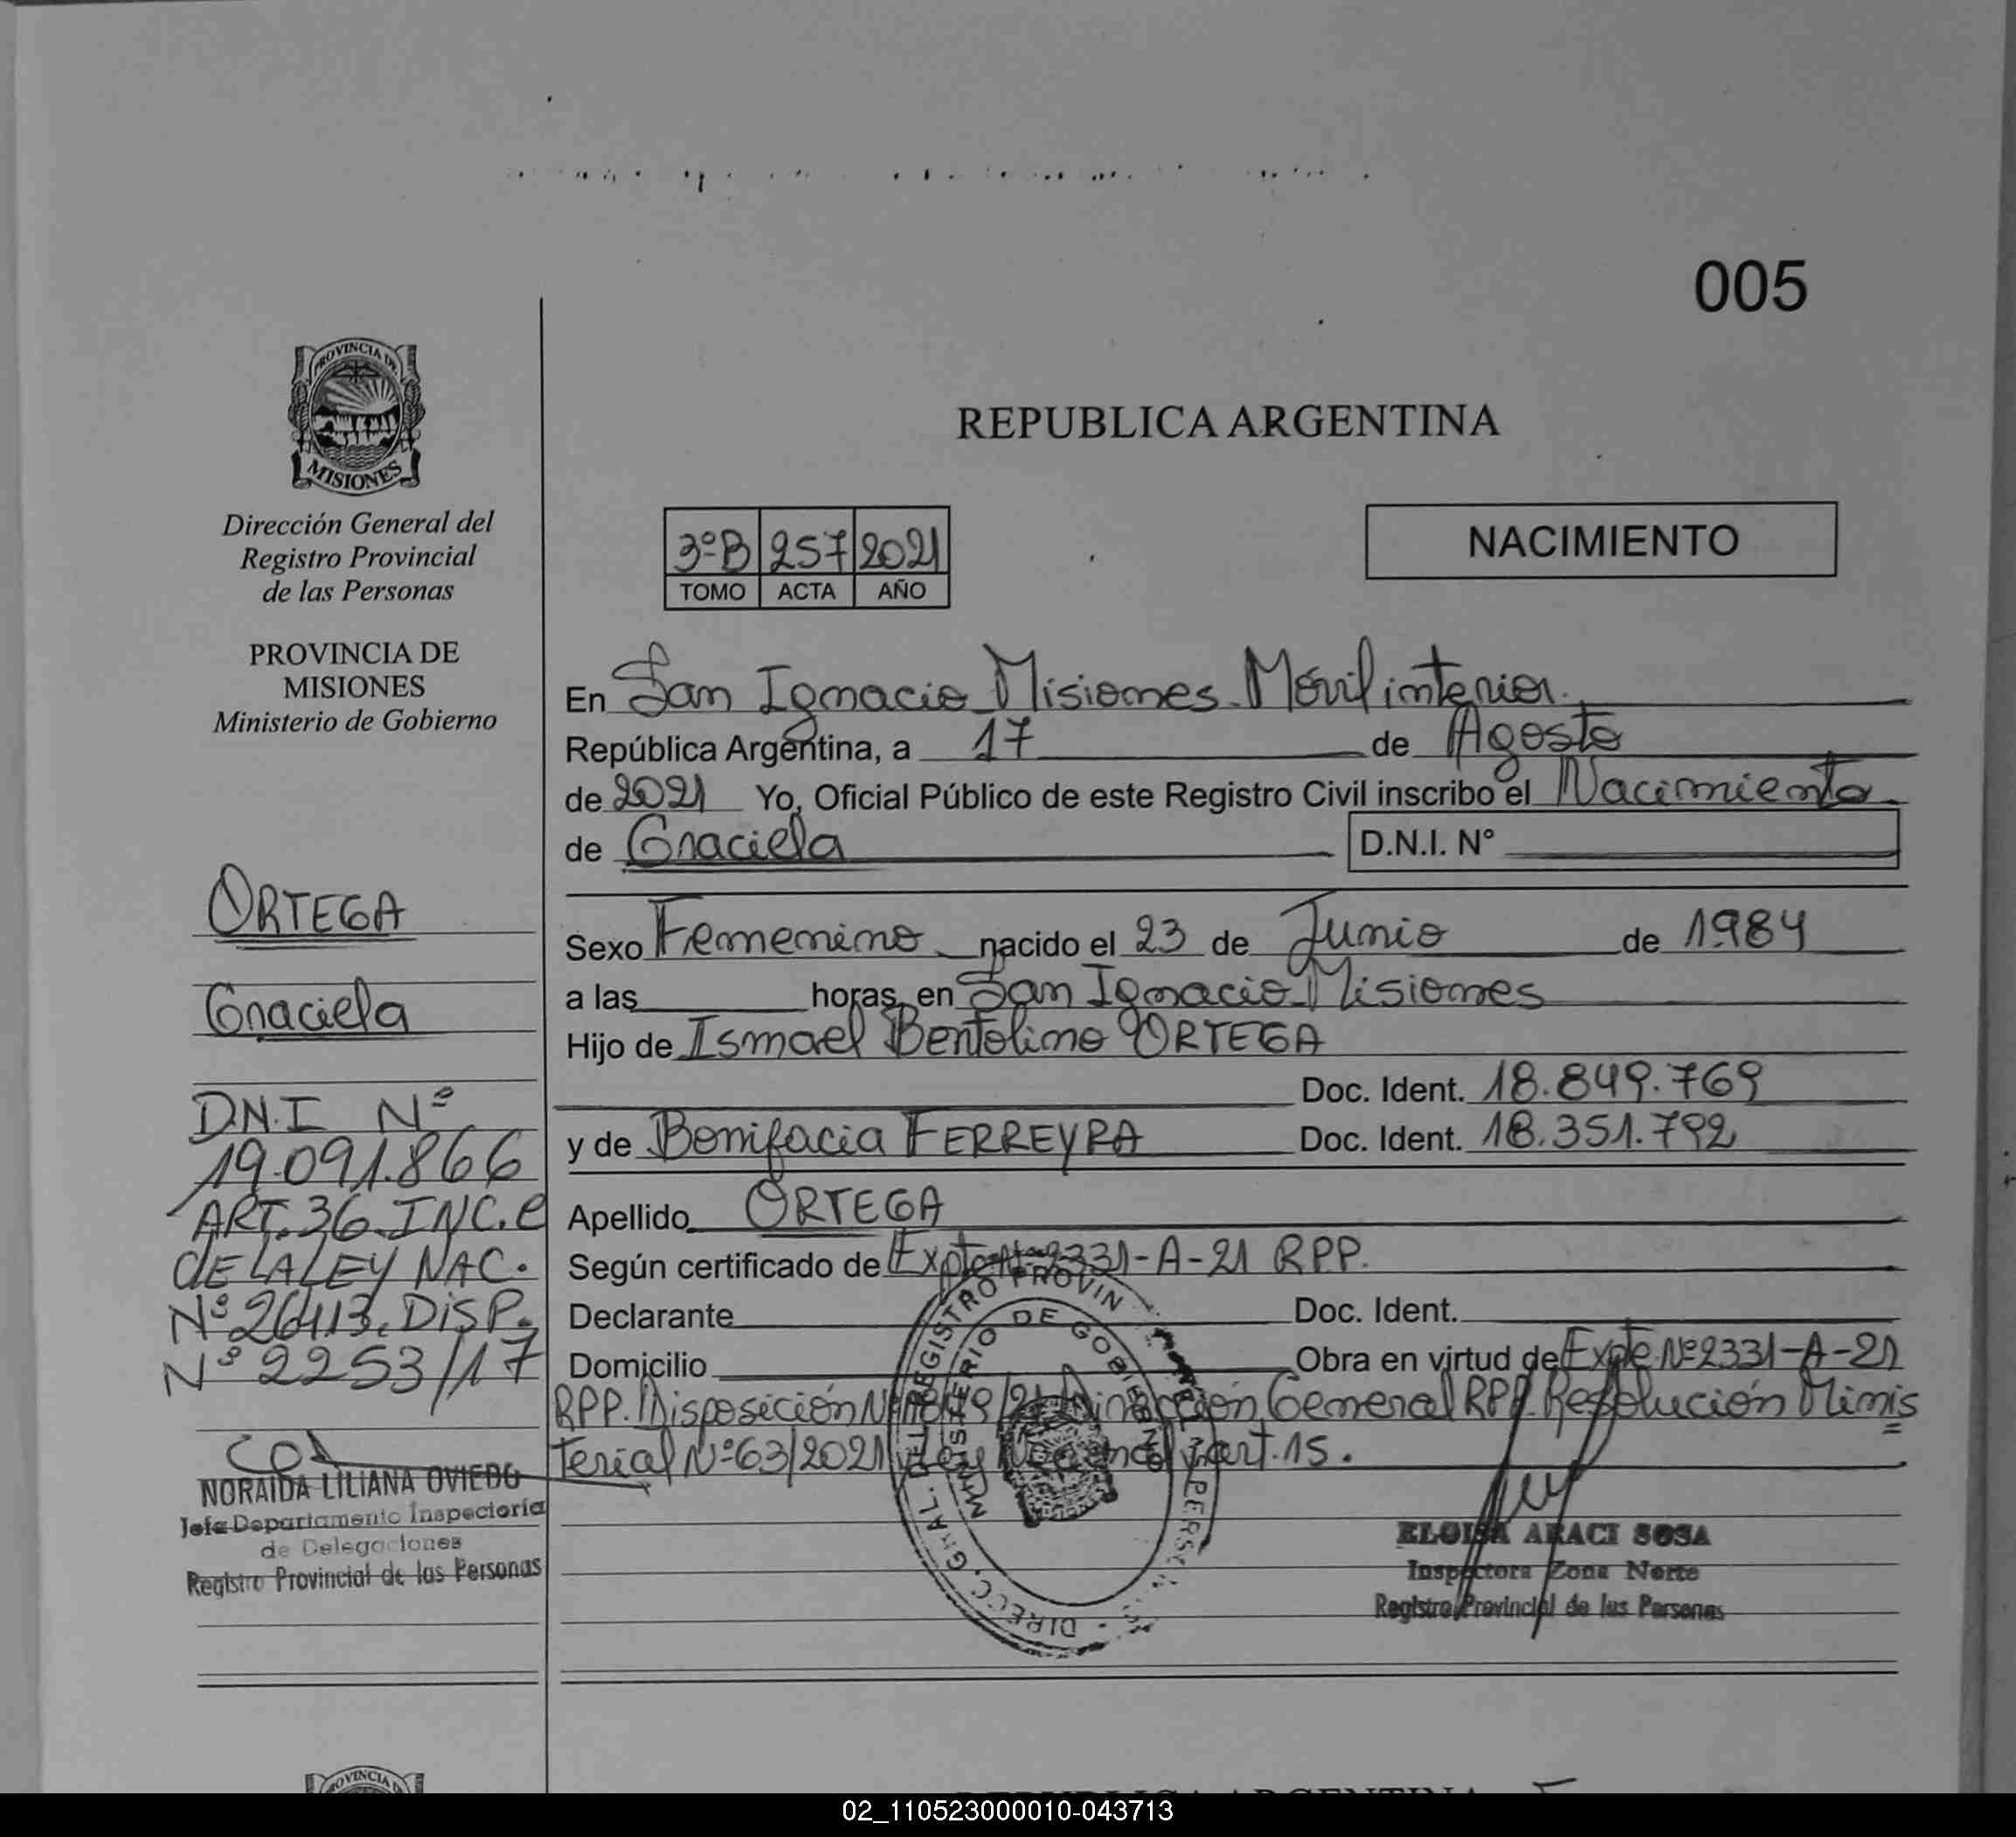 005
PROVINCIA DE
MISIONES
Dirección General del
Registro Provincial
de las Personas
PROVINCIA DE
MISIONES
Ministerio de Gobierno
ORTEGA
Graciela
D.N.I Nº
19.091.866
ART. 36 INC. e
DE LA LEY NAC.
Nº 26413. DISP.
Nº 2253/17
NORAIDA LILIANA OVIEDO
Jefa Departamento Inspectoría
de Delegaciones
Registro Provincial de las Personas
REPUBLICA ARGENTINA
3ºB 257 2021
TOMO ACTA AÑO
NACIMIENTO
En San Ignacio Misiones Móvil interior.
República Argentina, a 17 de Agosto
de 2021 Yo, Oficial Público de este Registro Civil inscribo el Nacimiento
de Graciela D.N.I. Nº
Sexo Femenino nacido el 23 de Junio de 1984
a las horas, en San Ignacio Misiones
Hijo de Ismael Bertolino ORTEGA
Doc. Ident. 18.849.769
y de Bonifacia FERREYRA Doc. Ident. 18.351.792
Apellido ORTEGA
Según certificado de Expte Nº 2331-A-21 RPP.
Declarante Doc. Ident.
Domicilio Obra en virtud de Expte Nº2331-A-21
RPP. Disposición General RPP. Resolución Minis
terial Nº63/2021 art.15.
DIRECC. GRAL. DEL REGISTRO PROVIN PERS
MINISTERIO DE GOBIE
ELOISA ARACI SOSA
Inspectora Zona Norte
Registro Provincial de las Personas
PROVINCIA D
REPUBLICA ARGENTINA
02_110523000010-043713